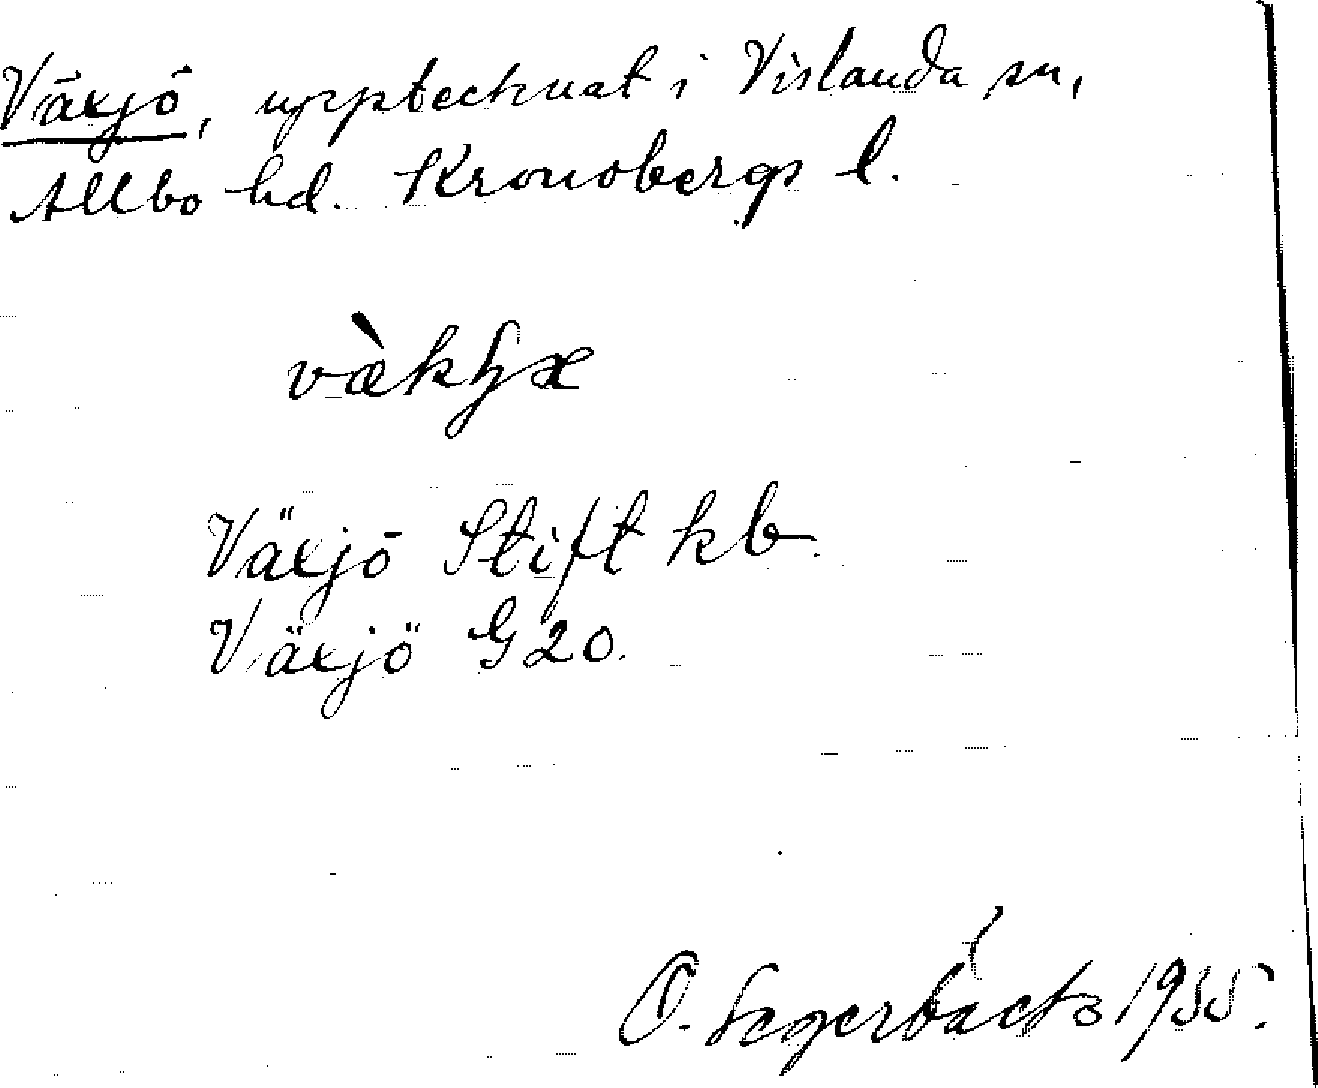 Växjö, upptecknat i Vislanda sn,
Allbo hd. Kronobergs l.
Växjö Stift kb.
Växjö G 20.
O. Segerbäck 1935.